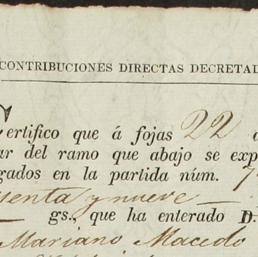 CONTRIBUCIONES DIRECTAS DECRETAD
Certifico que á fojas 22
ar del ramo que abajo se exp
gados en la partida núm. 7
senta y nueve
gs., que ha enterado D.
Mariano Macedo